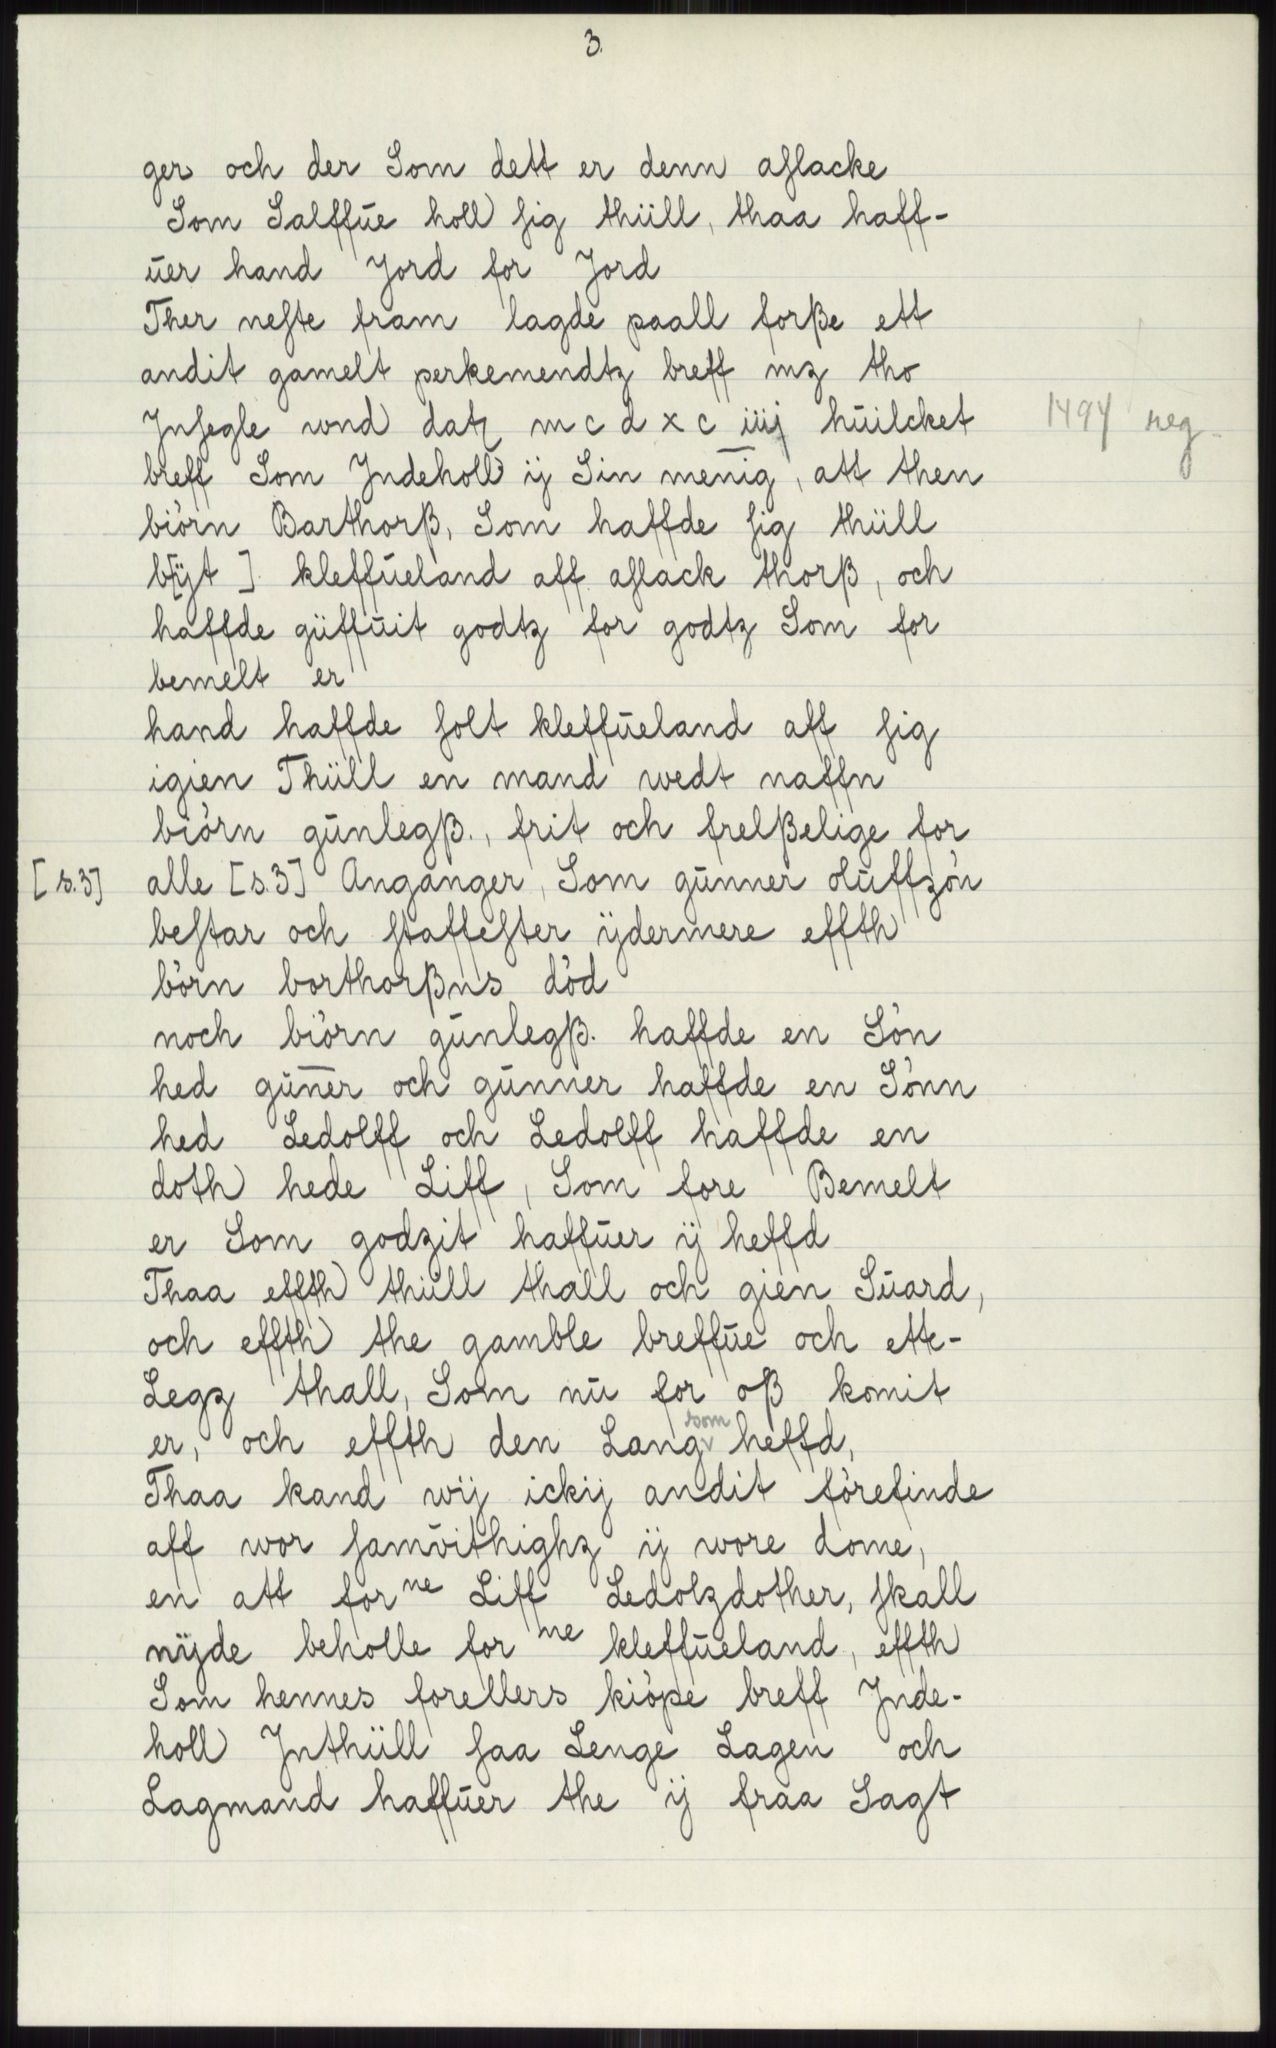 3.
ger och der Som dett er denn aslacke
Som Salffūe holl sig thüll, thaa haff-
ūer hand Jord for Jord
Ther neste fram lagde paall forße ett
andit gamelt perkemendtz breff mz tho
Jnsegle wnd datz m c d x c iiij hūilcket 1494 reg
breff Som Jndeholl ij Sin menig, att then
biörn Barthorß, Som haffde sig thüll
b[ÿt] kleffūeland aff aslack thorß, och
haffde güffūit godtz for godtz Som for
bemelt er
hand haffde solt kleffūeland aff sig
igien Thüll en mand wedt naffn
biörn gūnlegß., frit och frelßelige for
[s.3] alle [s.3] Anganger, Som gūnner olūffzön
bestar och staffester ÿdermere effth
börn borthorßns död
noch biörn gūnlegß. haffde en Sön
hed gūn̄er och gūnner haffde en Sönn
hed Ledolff och Ledolff haffde en
doth hede Liff, Som fore Bemelt
er Som godzit haffūer ij heffd
Thaa effth thüll thall och gien Sūard,
och effth the gamble breffūe och ette-
Legz thall, Som nū for oß komit
er, och effth den Lang som heffd,
Thaa kand wij ickij andit förefinde
aff wor samvithighz ij wore dome,
en att for ne Liff Ledolzdother, skall
nÿde beholle for ne kleffūeland, effth
Som hennes forellers kiöpe breff Jnde-
holl Jnthüll saa Lenge Lagen och
Lagmand haffūer the ij fraa Sagt